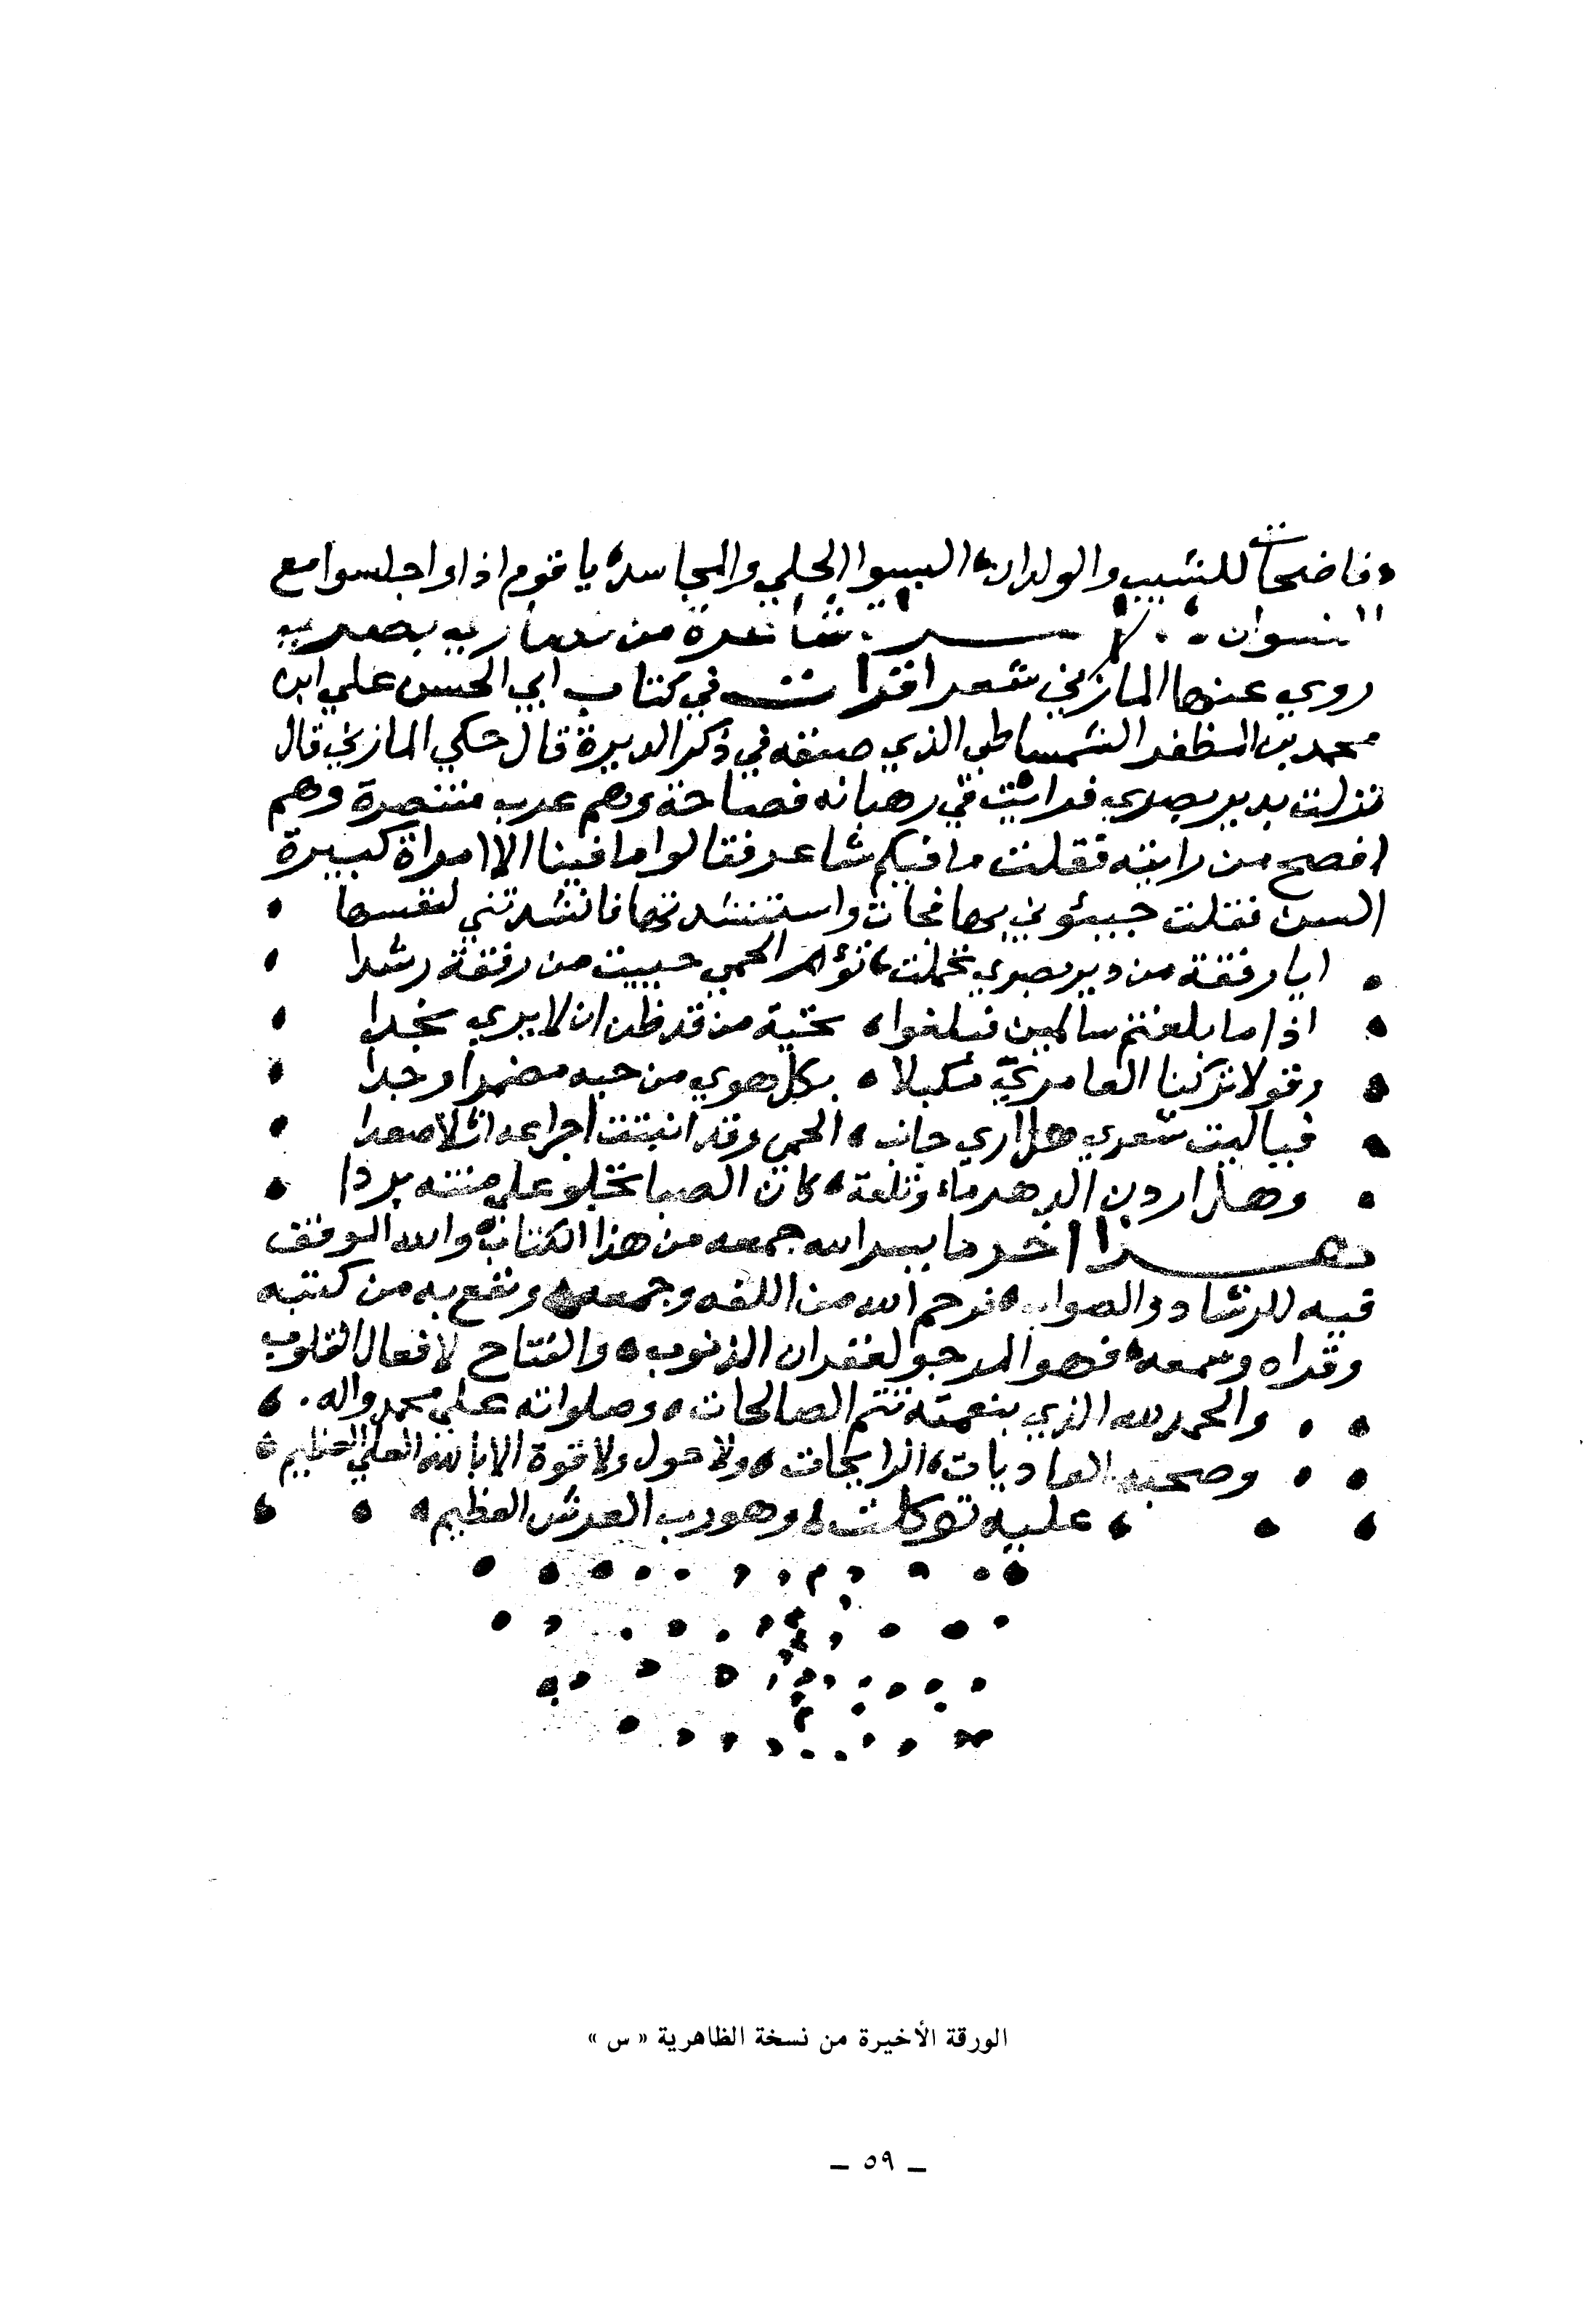 فاضحات للشيب والولدان، البسوا الحلي والمجاسد، يا قوم اذا واجلسوا مع
النسوان شاعرة من نصاري بصري
روي عنها المازني شعرا قرات في كتاب ابي الحسن علي ابن
محمد بن المظفر الشمساطي الذي صنفه في ذكر الديرة قال حكي المازني قال
نزلت بدير بصري فرايت في رهبانه فصاحة وهم عرب متنصرة وهم
افصح من رايته فقلت ما فيكم شاعر فقالوا ما فينا الا امراة كبيرة
السن فقلت جيئوني بها فجات واستنشدتها فانشدتني لنفسها
ايا رفقة من دير بصري تحملت، تؤم الحمي حييت من رفقة رشدا
اذا ما بلغتم سالمين فبلغوا، تحية من قد ظن ان لا يري نجدا
وقولا تركنا العامري مكبلا، بكل هوي من حبه مضمرا وجدا
فيا ليت شعري هل اري جانب، الحمي وقد انبتت اجراعه اثلا صعدا
وهل اردن الدهر ماء وتلعة، كان الصبا تخلو علي متنه بردا
هذا اخر ما يسر الله جمعه من هذا الكتاب، والله الموفق
فيه للرشاد والصواب، فرحم الله من اللفه وجمعه، ونفع به من كتبه
وقراه وسمعه، فهو المرجو لغفران الذنوب، والفتاح لاقفال القلوب
والحمد لله الذي بنعمته تتم الصالحات، وصلواته علي محمد واله،
وصحبه ولا حول ولا قوة الا بالله العلي العظيم
عليه توكلت، وهو رب العرش العظيم،
الورقة الأخيرة من نسخة الظاهرية « س »
ـ ٥٩ ـ